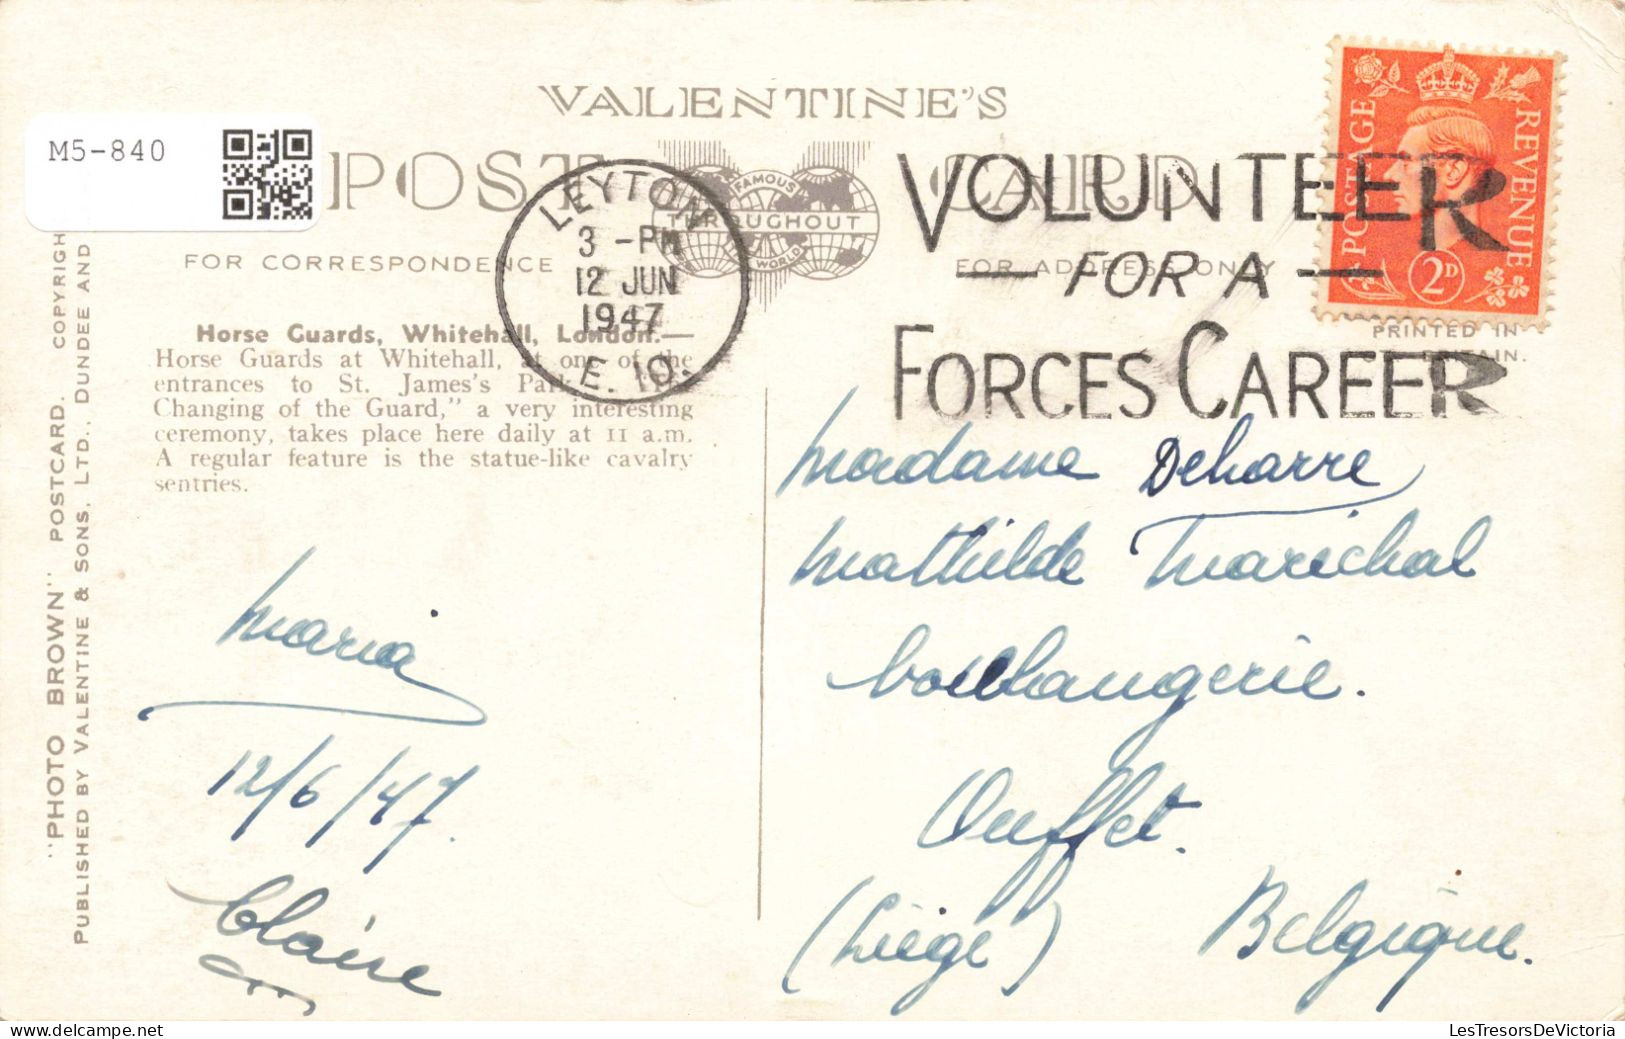 VALENTINE'S
M5-840
POST CARD
FAMOUS
THROUGHOUT
WORLD
FOR CORRESPONDENCE
FOR ADDRESS ONLY
LEYTON
3 -PM
12 JUN
1947
E. 10.
VOLUNTEER
— FOR A —
FORCES CAREER
POSTAGE
REVENUE
2D
PRINTED IN
Horse Guards, Whitehall, London.—
Horse Guards at Whitehall, at one of the
entrances to St. James's Park.
Changing of the Guard," a very interesting
ceremony, takes place here daily at 11 a.m.
A regular feature is the statue-like cavalry
sentries.
"PHOTO BROWN" POSTCARD. COPYRIGH
PUBLISHED BY VALENTINE & SONS, LTD., DUNDEE AND
Maria
12/6/47.
Claire
Madame Deharre
Mathilde Maréchal
boulangerie.
Ouffet.
(Liége) Belgique.
LesTresorsDeVictoria